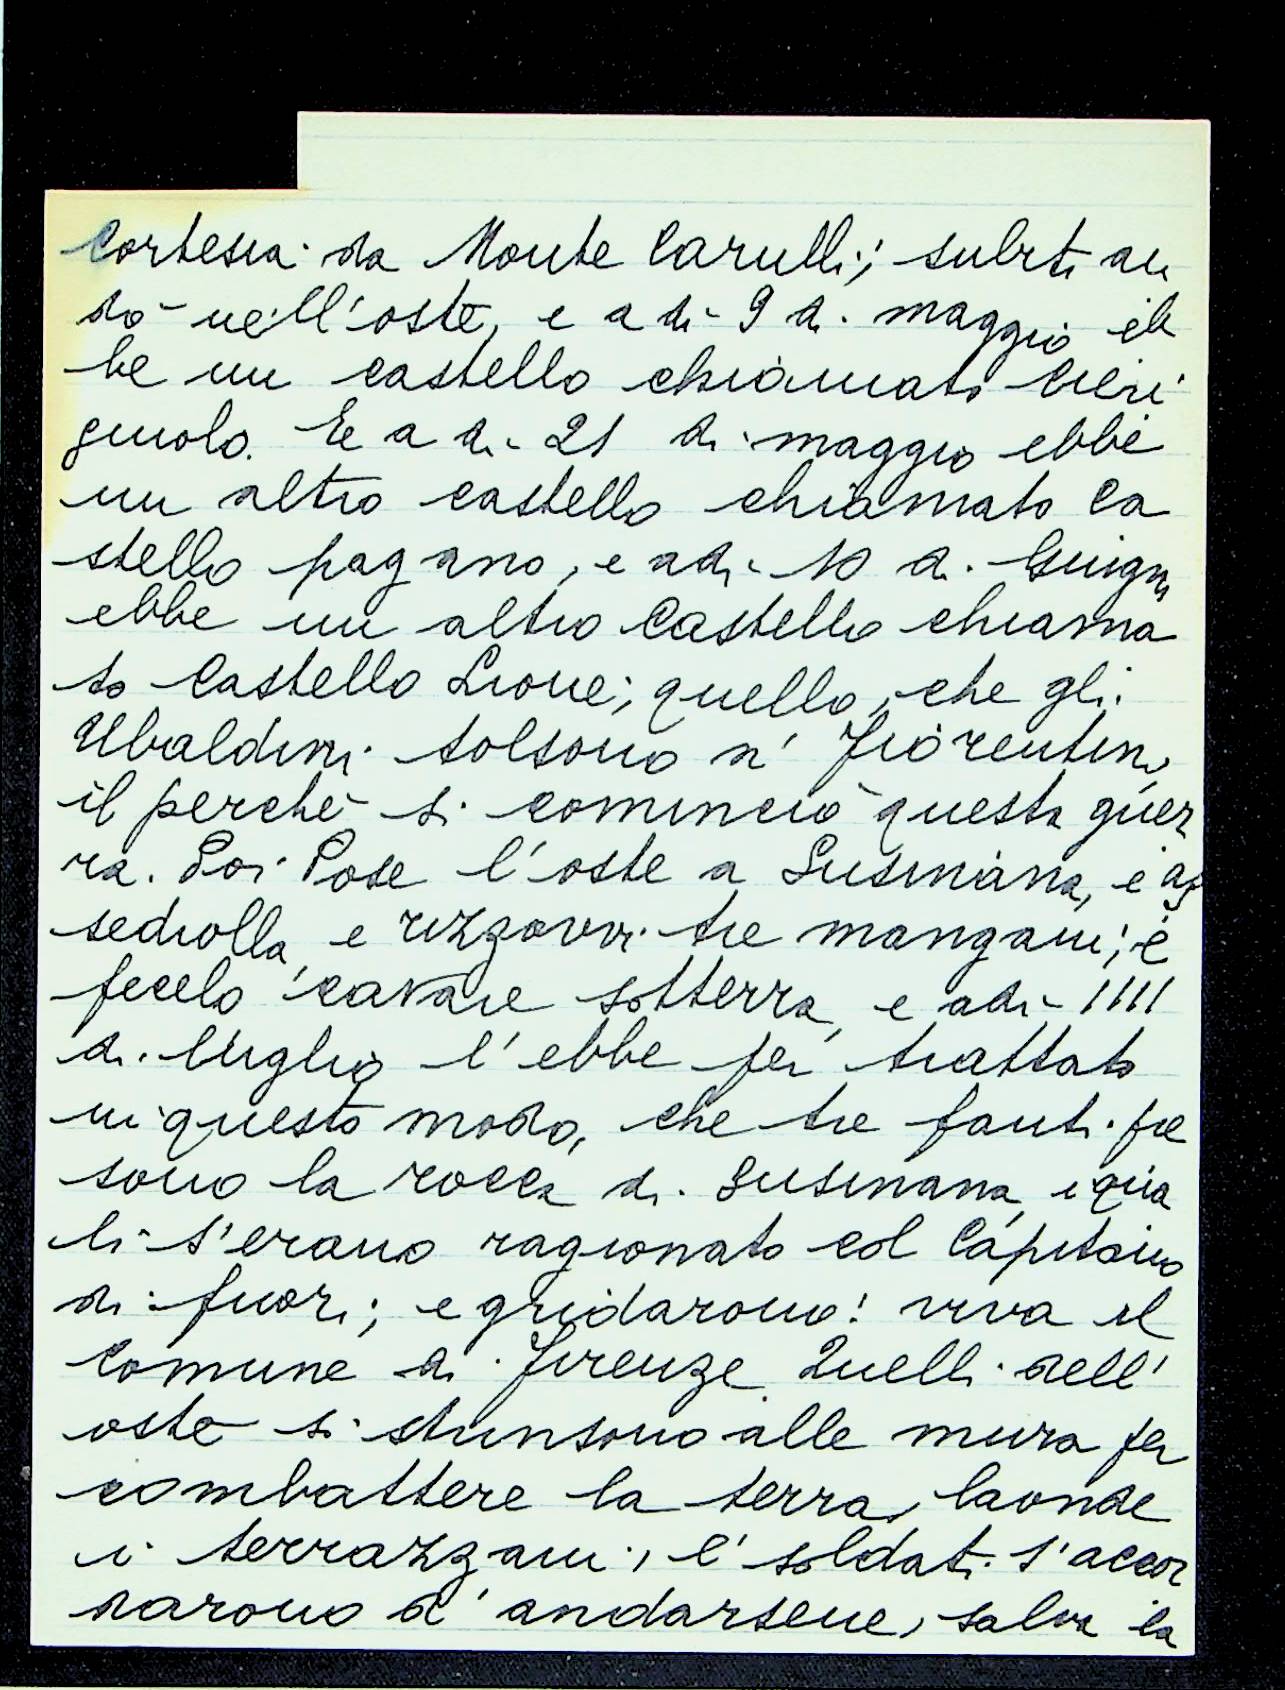 Cortesia da Monte Carulli; subiti an
dò nell'oste, e a dì 9 di maggio eb
be un castello chiamato Cieri
gnuolo. E a dì 21 di maggio ebbe
un altro castello chiamato Ca
stello pagano, e a dì 10 di Giugno
ebbe un altro Castello chiama
to Castello Lione; quello, che gli
Ubaldini tolsono a' Fiorentini,
il perchè si cominciò questa guer
ra. Poi Pose l'oste a Susinana, e as
sediolla, e rizzovvi tre mangani; e
fecelo cavare sotterra, e a dì IIII
di luglio l'ebbe per trattato
in questo modo, che tre fanti pre
sono la rocca di Susinana, i qua
li s'erano ragionato col Capitano
di fuori; e gridarono! viva il
Comune di Firenze. Quelli dell'
oste si strinsono alle mura per
combattere la terra, laonde
i terrazzani, e' soldati s'accor
darono d'andarsene, salva la